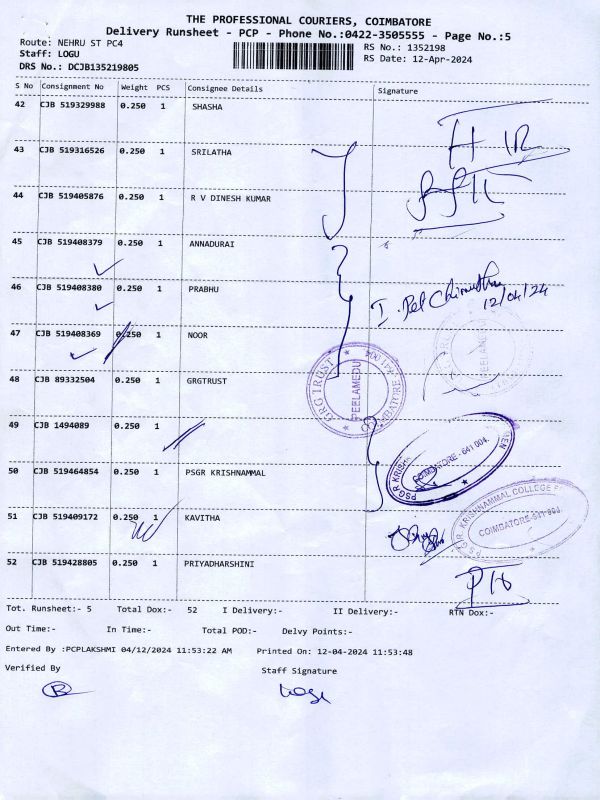 THE PROFESSIONAL COURIERS, COIMBATORE
Delivery Runsheet - PCP - Phone No.:0422-3505555 - Page No.:5
Route: NEHRU ST PC4
RS No.: 1352198
Staff: LOGU
RS Date: 12-Apr-2024
DRS No.: DCJB135219805
S No Consignment No Weight PCS Consignee Details Signature
42 CJB 519329988 0.250 1 SHASHA
43 CJB 519316526 0.250 1 SRILATHA
44 CJB 519405876 0.250 1 R V DINESH KUMAR
45 CJB 519408379 0.250 1 ANNADURAI
46 CJB 519408380 0.250 1 PRABHU
12/04/24
47 CJB 519408369 0.250 1 NOOR
48 CJB 89332504 0.250 1 GRGTRUST
GRG TRUST PEELAMEDU COIMBATORE
49 CJB 1494089 0.250 1
50 CJB 519464854 0.250 1 PSGR KRISHNAMMAL
COIMBATORE - 641 004.
51 CJB 519409172 0.250 1 KAVITHA
P.S.G.R. KRISHNAMMAL COLLEGE
COIMBATORE-641 004
52 CJB 519428805 0.250 1 PRIYADHARSHINI
Tot. Runsheet:- 5 Total Dox:- 52 I Delivery:- II Delivery:- RTN Dox:-
Out Time:- In Time:- Total POD:- Delvy Points:-
Entered By :PCPLAKSHMI 04/12/2024 11:53:22 AM Printed On: 12-04-2024 11:53:48
Verified By Staff Signature